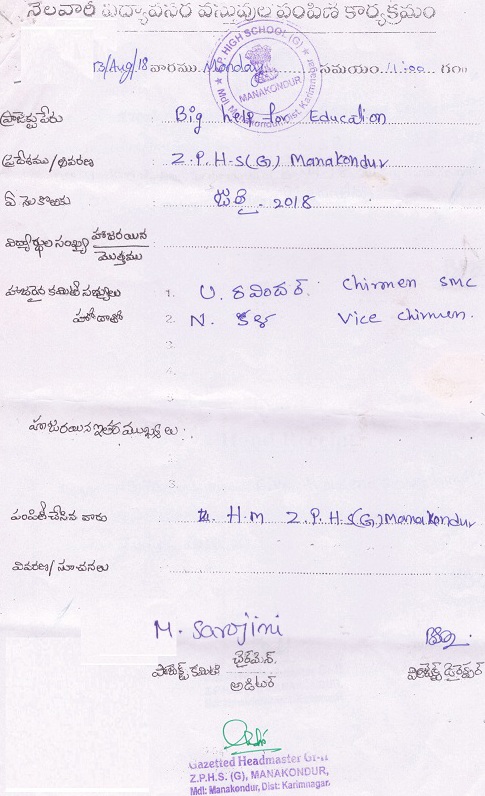 నెలవారీ విద్యావసర వస్తువుల పంపిణీ కార్యక్రమం
13/Aug/18 వారము Monday సమయం 11:00 గం॥
HIGH SCHOOL (G)
MANAKONDUR
Mdl: Manakondur, Dist: Karimnagar
ప్రాజెక్టు పేరు Big help for Education
ప్రదేశము/వివరణ Z.P.H.S(G) Manakondur
ఏ నెల కొరకు జులై - 2018
విద్యార్థుల సంఖ్య హాజరయిన
మొత్తము
హాజరైన కమిటీ సభ్యులు 1. U. రవిందర్. Chirmen SMC
హోదాతో 2. N. కళ Vice Chirmen.
3.
4.
హాజరయిన ఇతర ముఖ్యులు :
3.
పంపిణీ చేసిన వారు H.M Z.P.H.S(G) Manakondur
వివరణ/సూచనలు
M. Sarojini
ప్రాజెక్ట్ కమిటీ చైర్మెన్.
ఆడిటర్
ప్రాజెక్ట్ డైరెక్టర్
Gazetted Headmaster Gr-II
Z.P.H.S. (G), MANAKONDUR,
Mdl: Manakondur, Dist: Karimnagar.